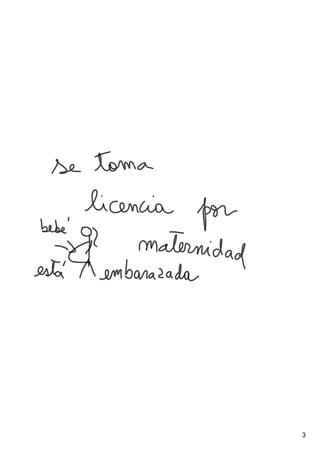 se toma
licencia por
bebé
maternidad
está embarazada
3